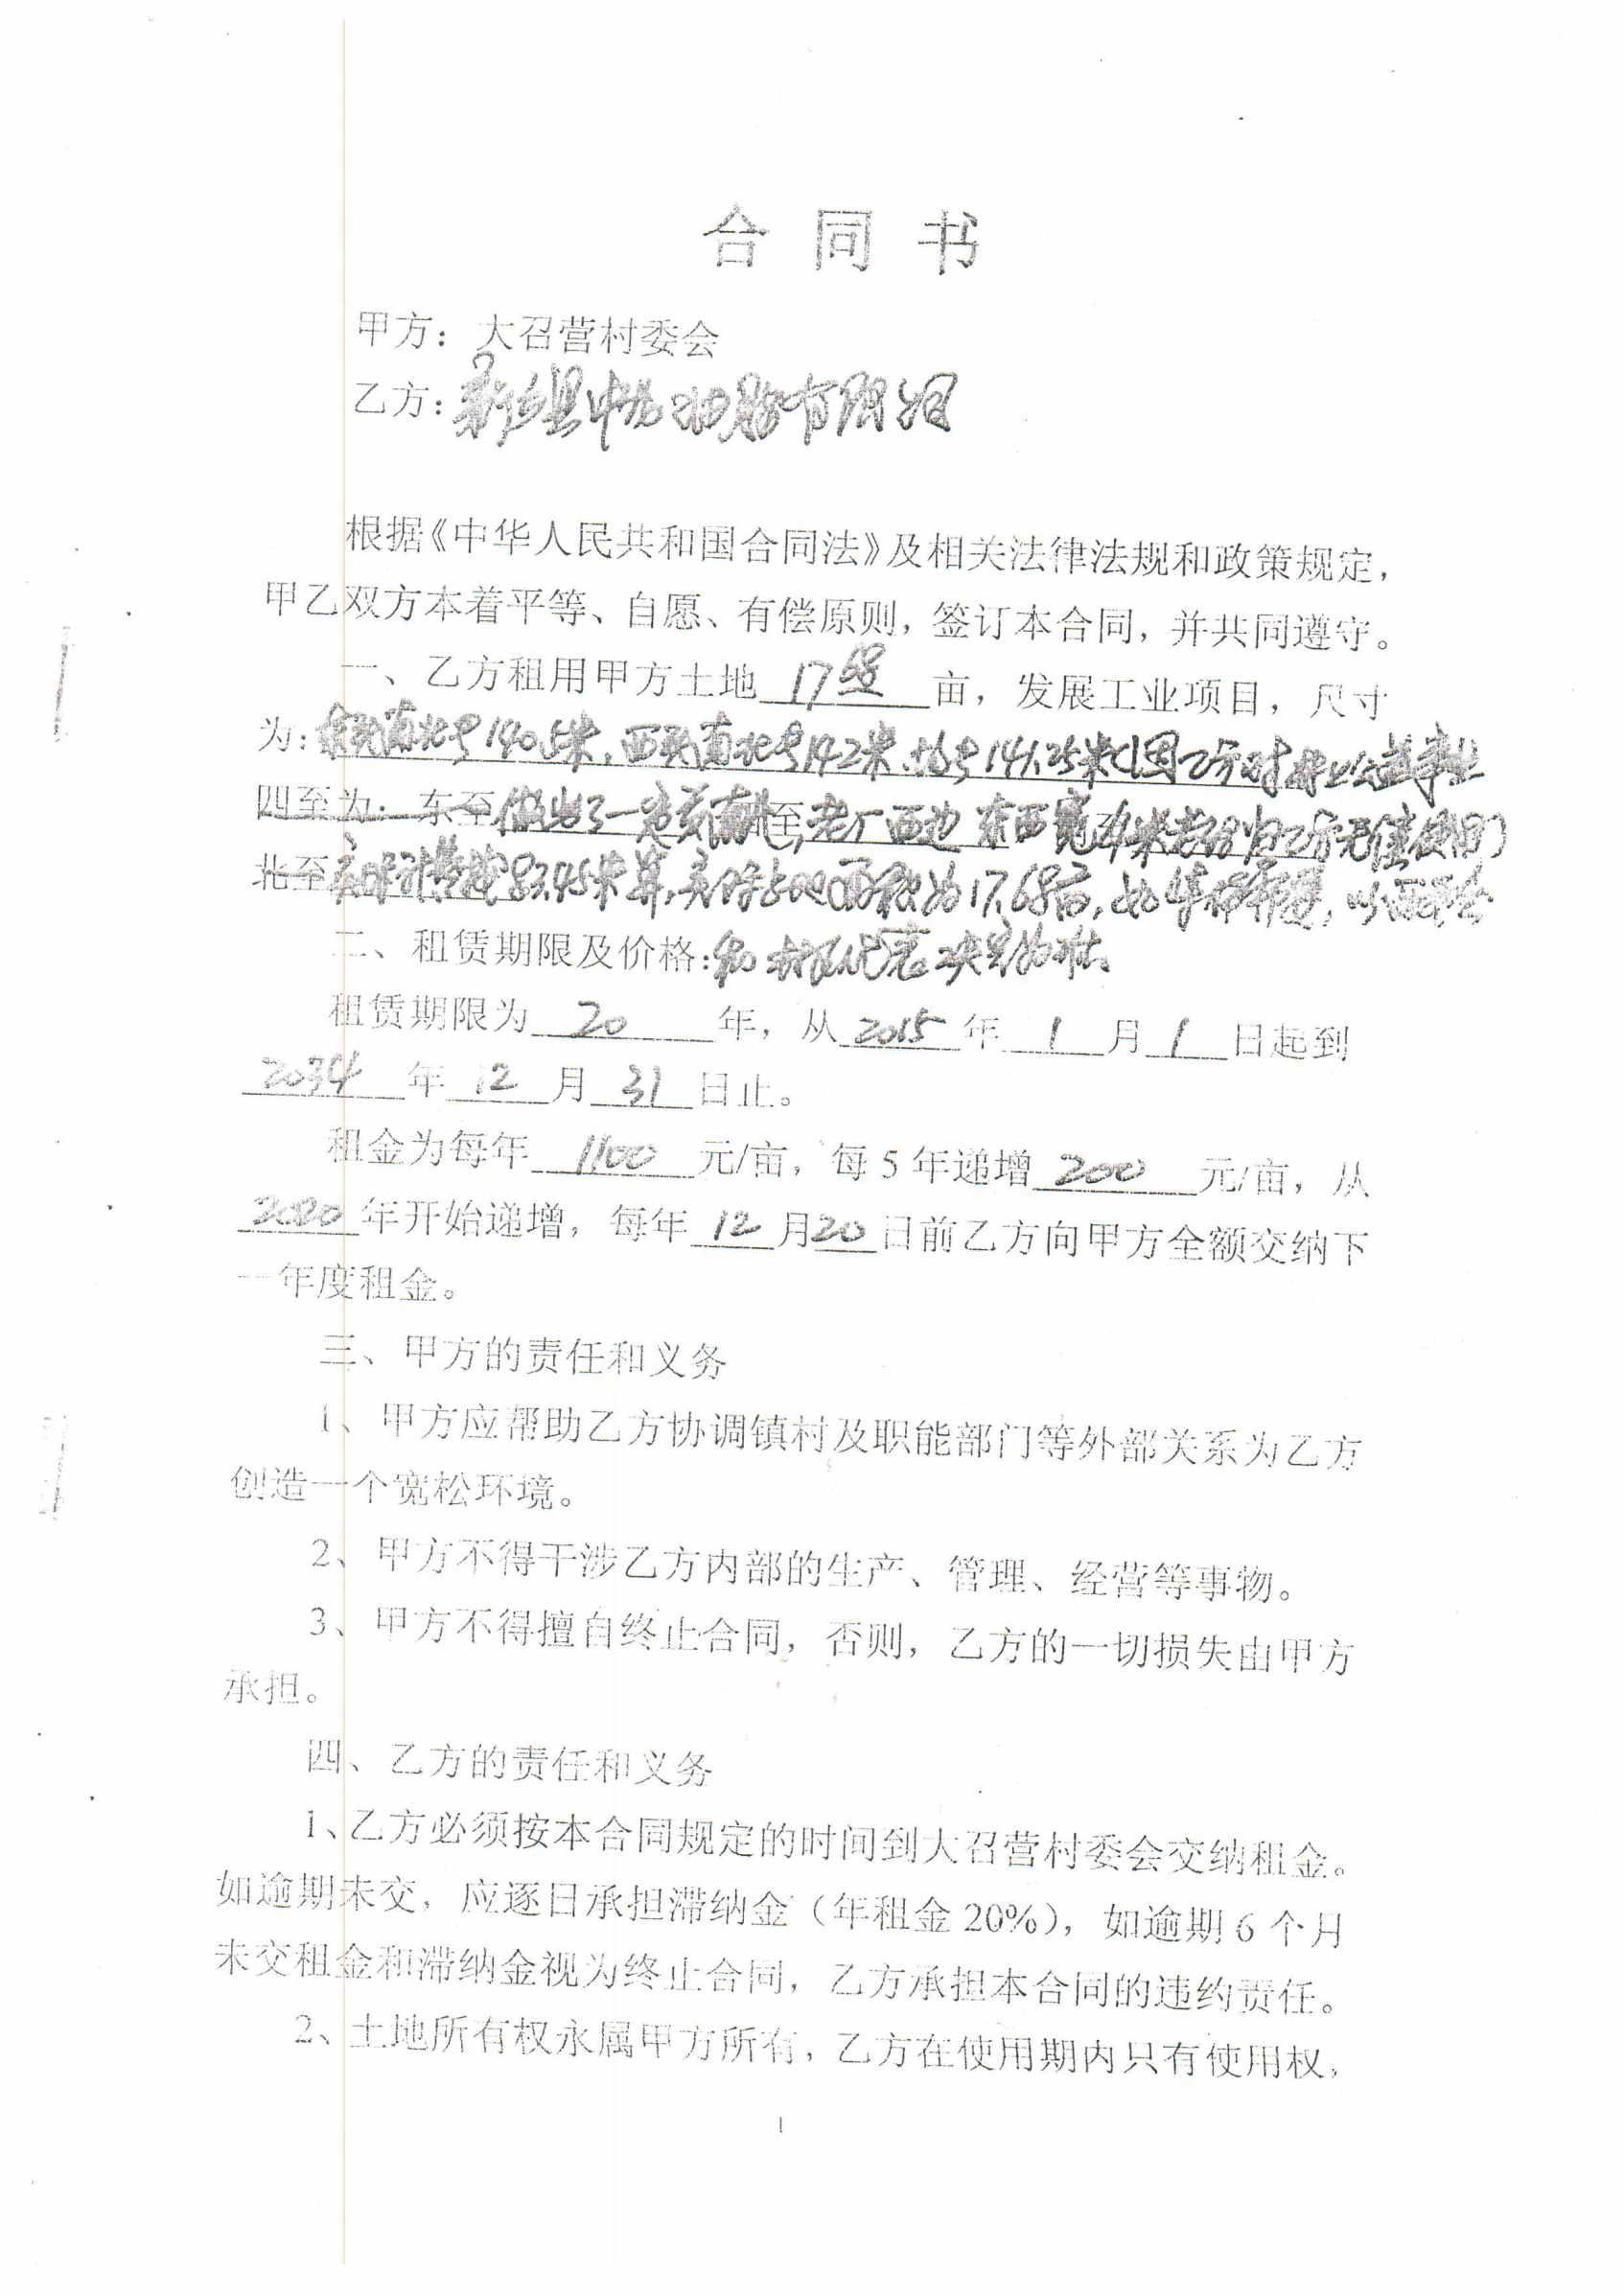 合同书
甲方：大召营村委会
乙方：新乡县 有限公司
根据《中华人民共和国合同法》及相关法律法规和政策规定，
甲乙双方本着平等、自愿、有偿原则，签订本合同，并共同遵守。
一、乙方租用甲方土地 17.68 亩，发展工业项目，尺寸
为：东头南北长140.5米，西头南北长142米，均长141.25米(因乙方对村公益事业
四至为：东至做出了一定贡献，至老厂西边东西宽 米老路归乙方无偿使用)
北至 83.45米算，实得占地面积为17.68亩，
二、租赁期限及价格：村民代表决定为准。
租赁期限为 20 年，从 2015 年 1 月 1 日起到
2034 年 12 月 31 日止。
租金为每年 1100 元/亩，每 5 年递增 200 元/亩，从
2020 年开始递增，每年 12 月 20 日前乙方向甲方全额交纳下
一年度租金。
三、甲方的责任和义务
1、甲方应帮助乙方协调镇村及职能部门等外部关系为乙方
创造一个宽松环境。
2、甲方不得干涉乙方内部的生产、管理、经营等事物。
3、甲方不得擅自终止合同，否则，乙方的一切损失由甲方
承担。
四、乙方的责任和义务
1、乙方必须按本合同规定的时间到大召营村委会交纳租金。
如逾期未交，应逐日承担滞纳金（年租金 20%），如逾期 6 个月
未交租金和滞纳金视为终止合同，乙方承担本合同的违约责任。
2、土地所有权永属甲方所有，乙方在使用期内只有使用权，
1